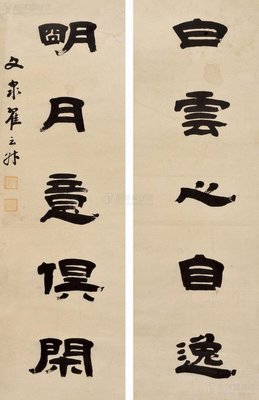 白雲心自逸
明月意俱閑
文泉翟云升